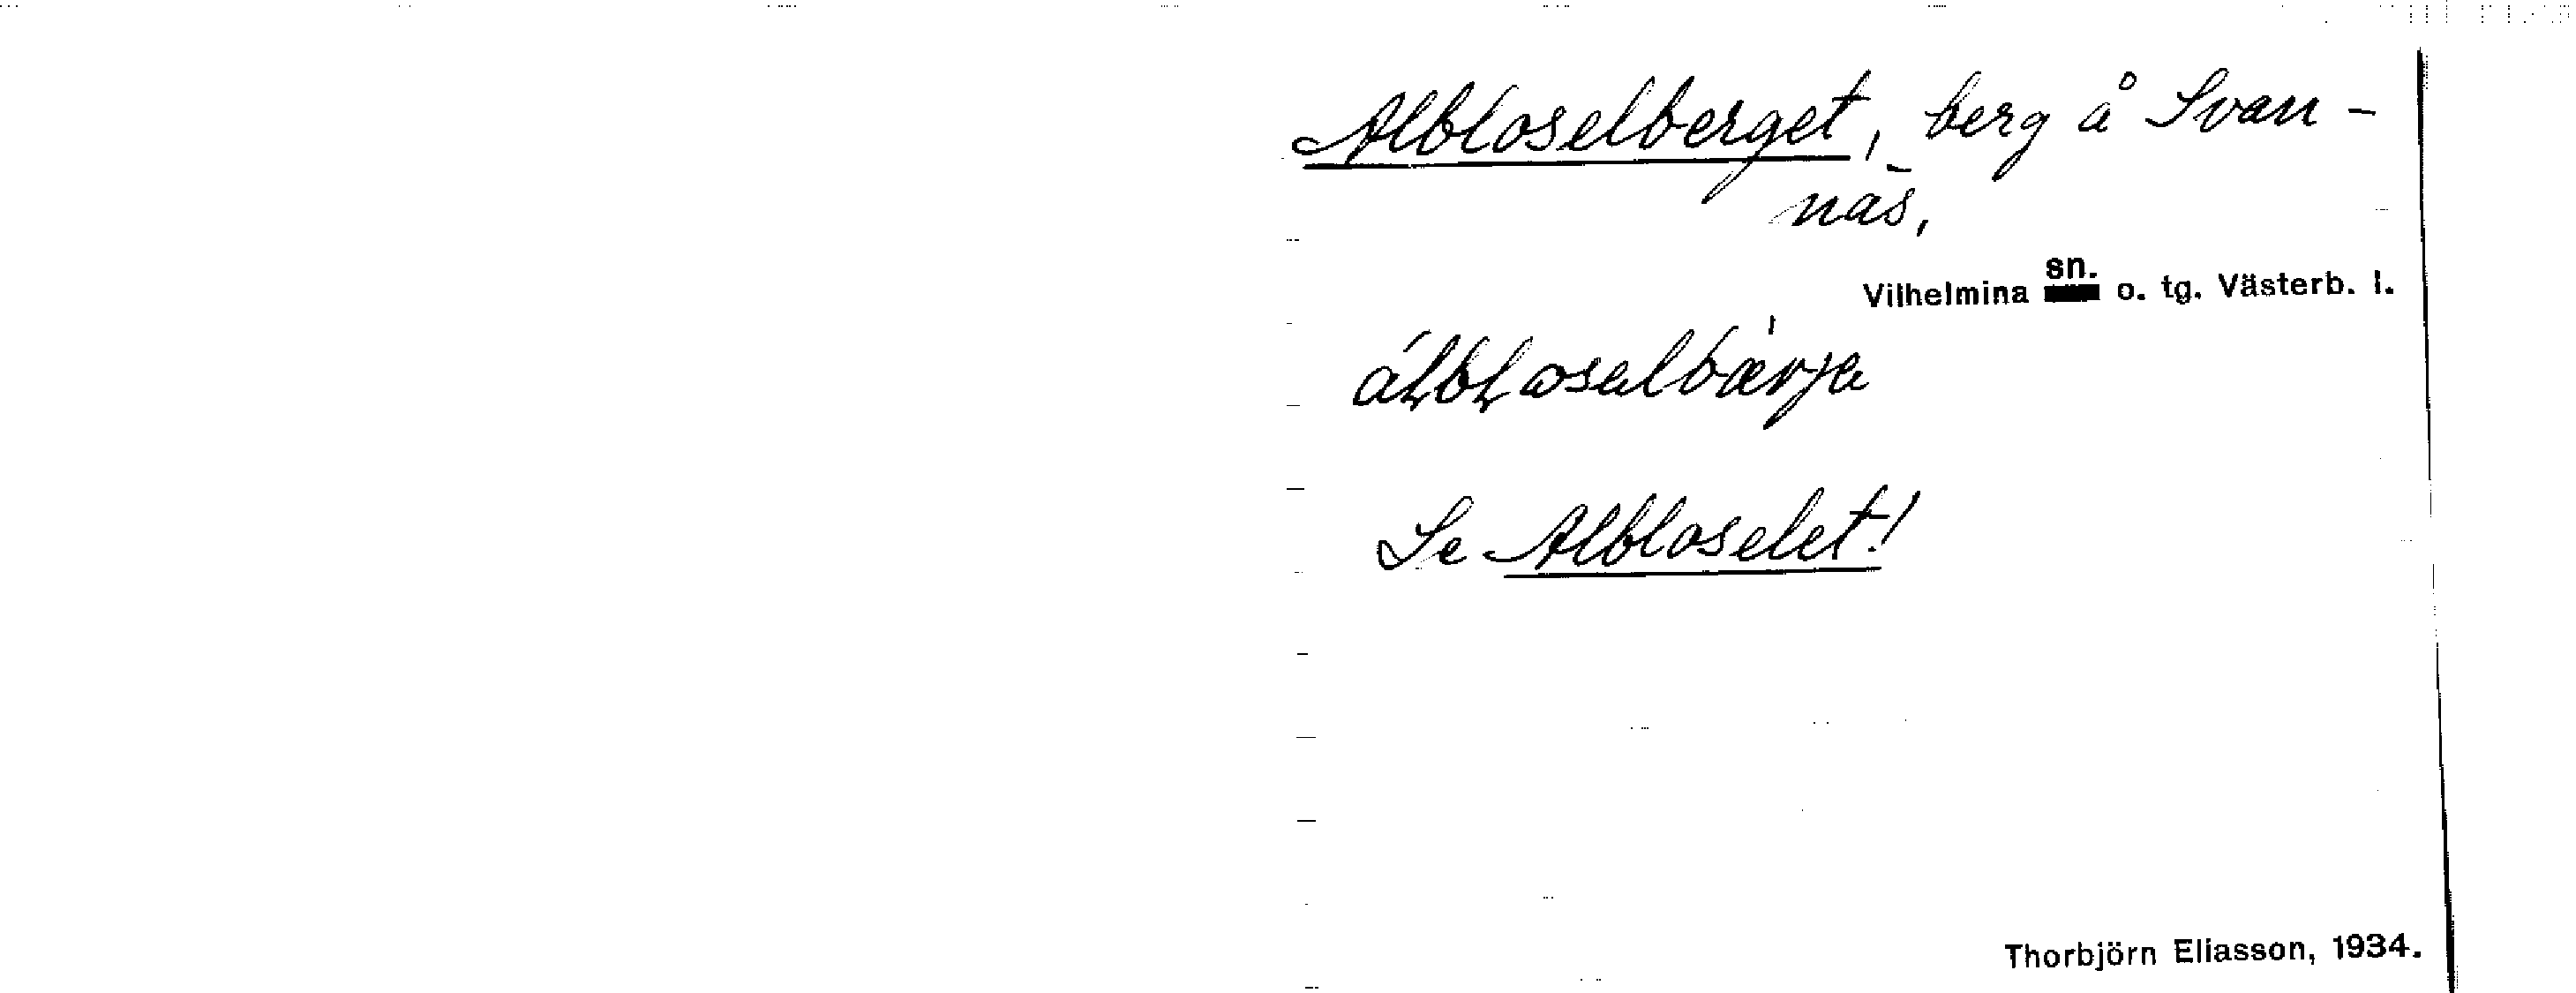 Albloselberget, berg å Svan-
näs,
Vilhelmina sn. o. tg. Västerb. l.
Se Albloselet!
Thorbjörn Eliasson, 1934.